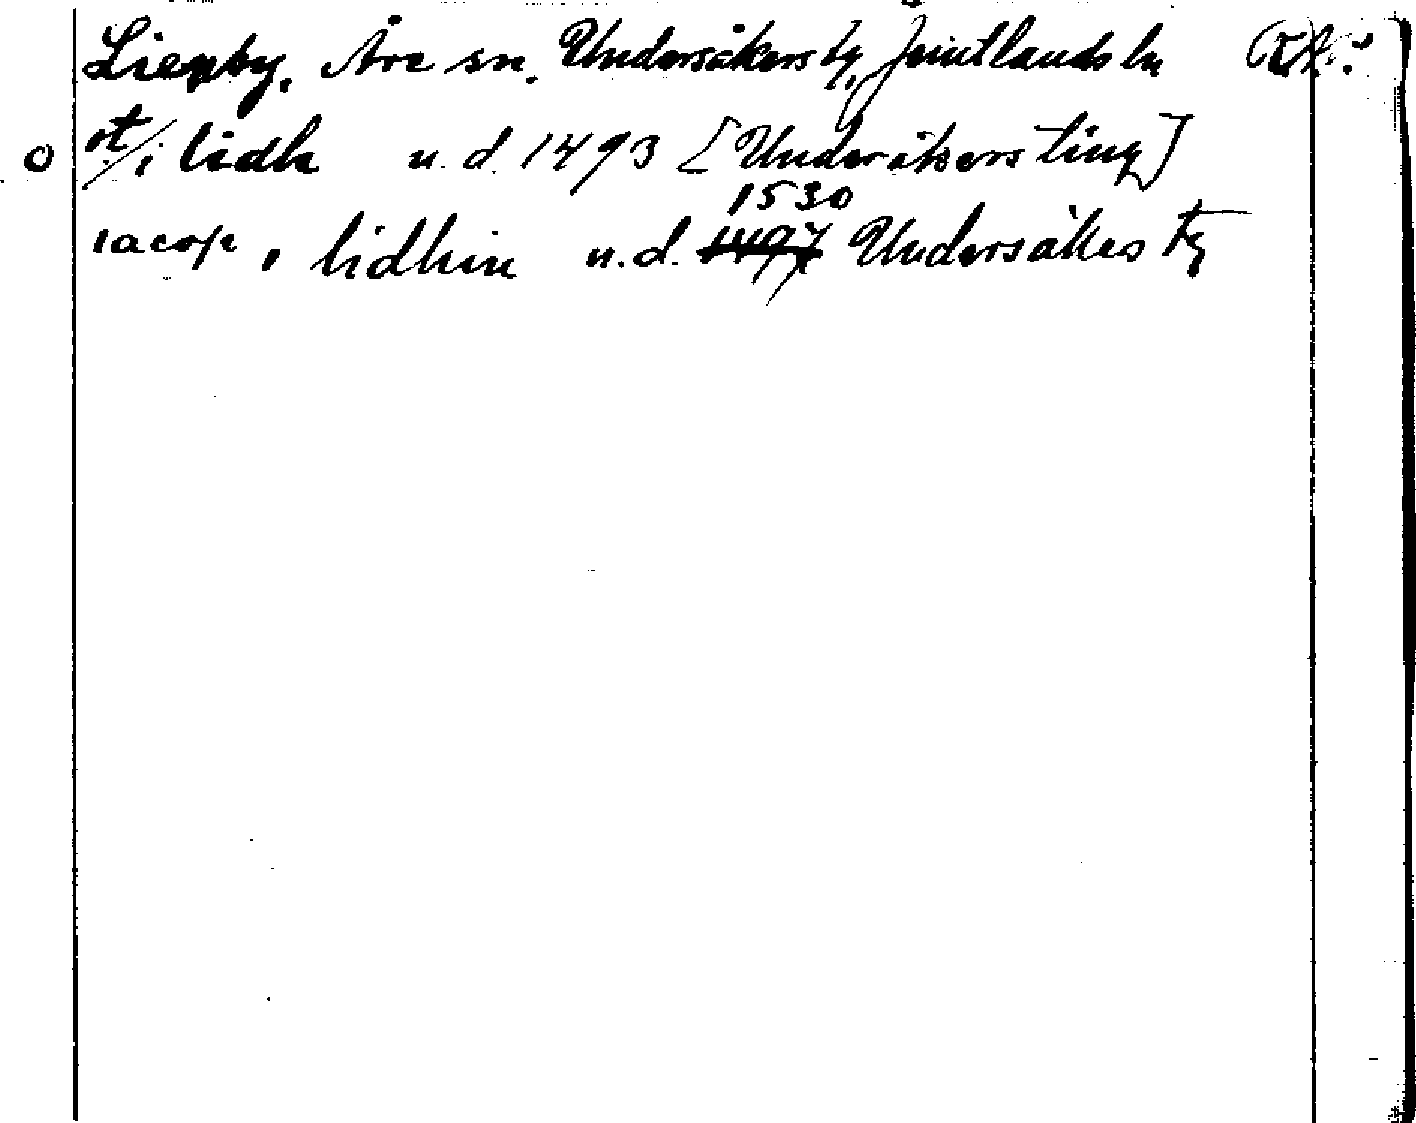 Lienby, Åre sn. Undersåkers tg, Jämtlands ln RA.
o st/i lidh u.d. 1493 [Undersåkers ting]
1530
iacop i lidhin u.d. 1497 Undersåkes tg